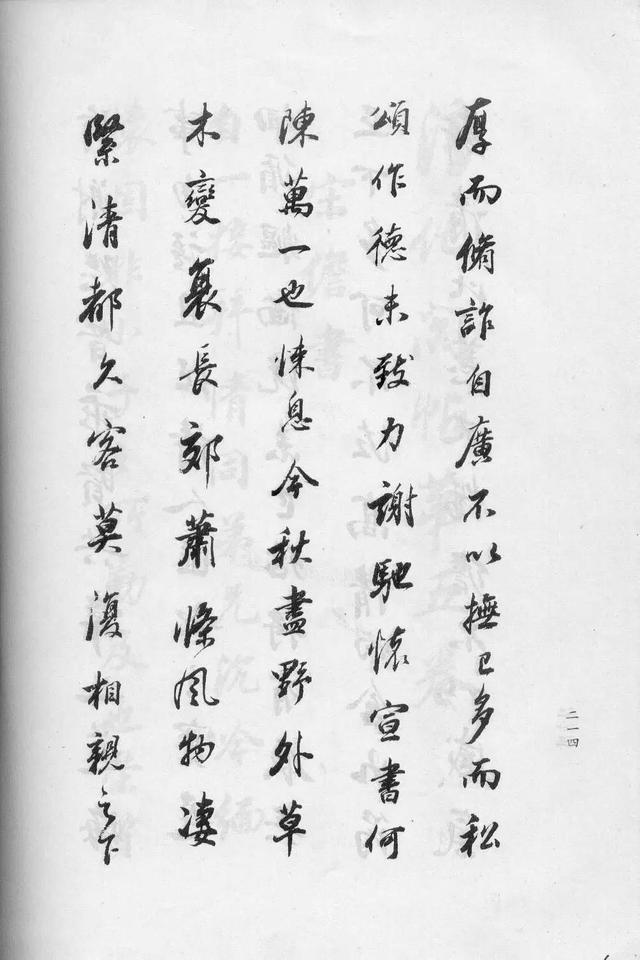 厚而脩詐自廣不以撫已多而私
頌作德未致力謝馳懷宣書何
陳萬一也悚息今秋盡野外草
木變衰長郊蕭條風物淒
緊清都久客莫復相親之下
二一四